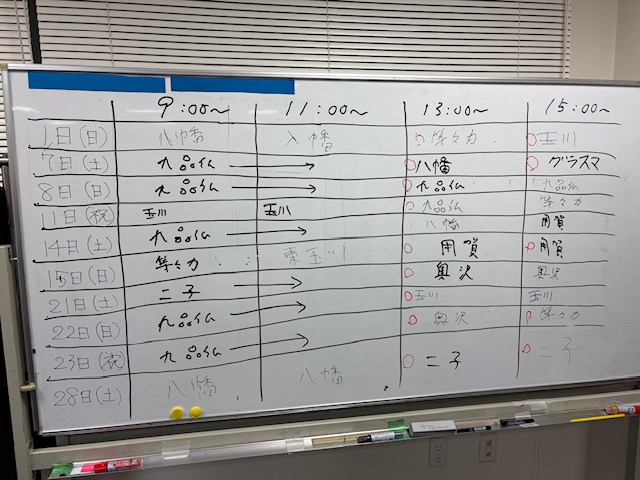 9:00～ 11:00～ 13:00～ 15:00～
1日(日) 八幡 八幡 ○等々力 ○玉川
7日(土) 九品仏 → ○八幡 ○グラスマ
8日(日) 九品仏 → ○九品仏 九品仏
11日(祝) 玉川 玉川 ○九品仏 等々力
14日(土) 九品仏 → 八幡 用賀
15日(日) 等々力 東玉川 ○用賀 ○用賀
21日(土) 二子 → ○奥沢 奥沢
22日(日) 九品仏 → ○玉川 玉川
23日(祝) 九品仏 → ○奥沢 ○等々力
28日(土) 八幡 八幡 ○二子 ○二子